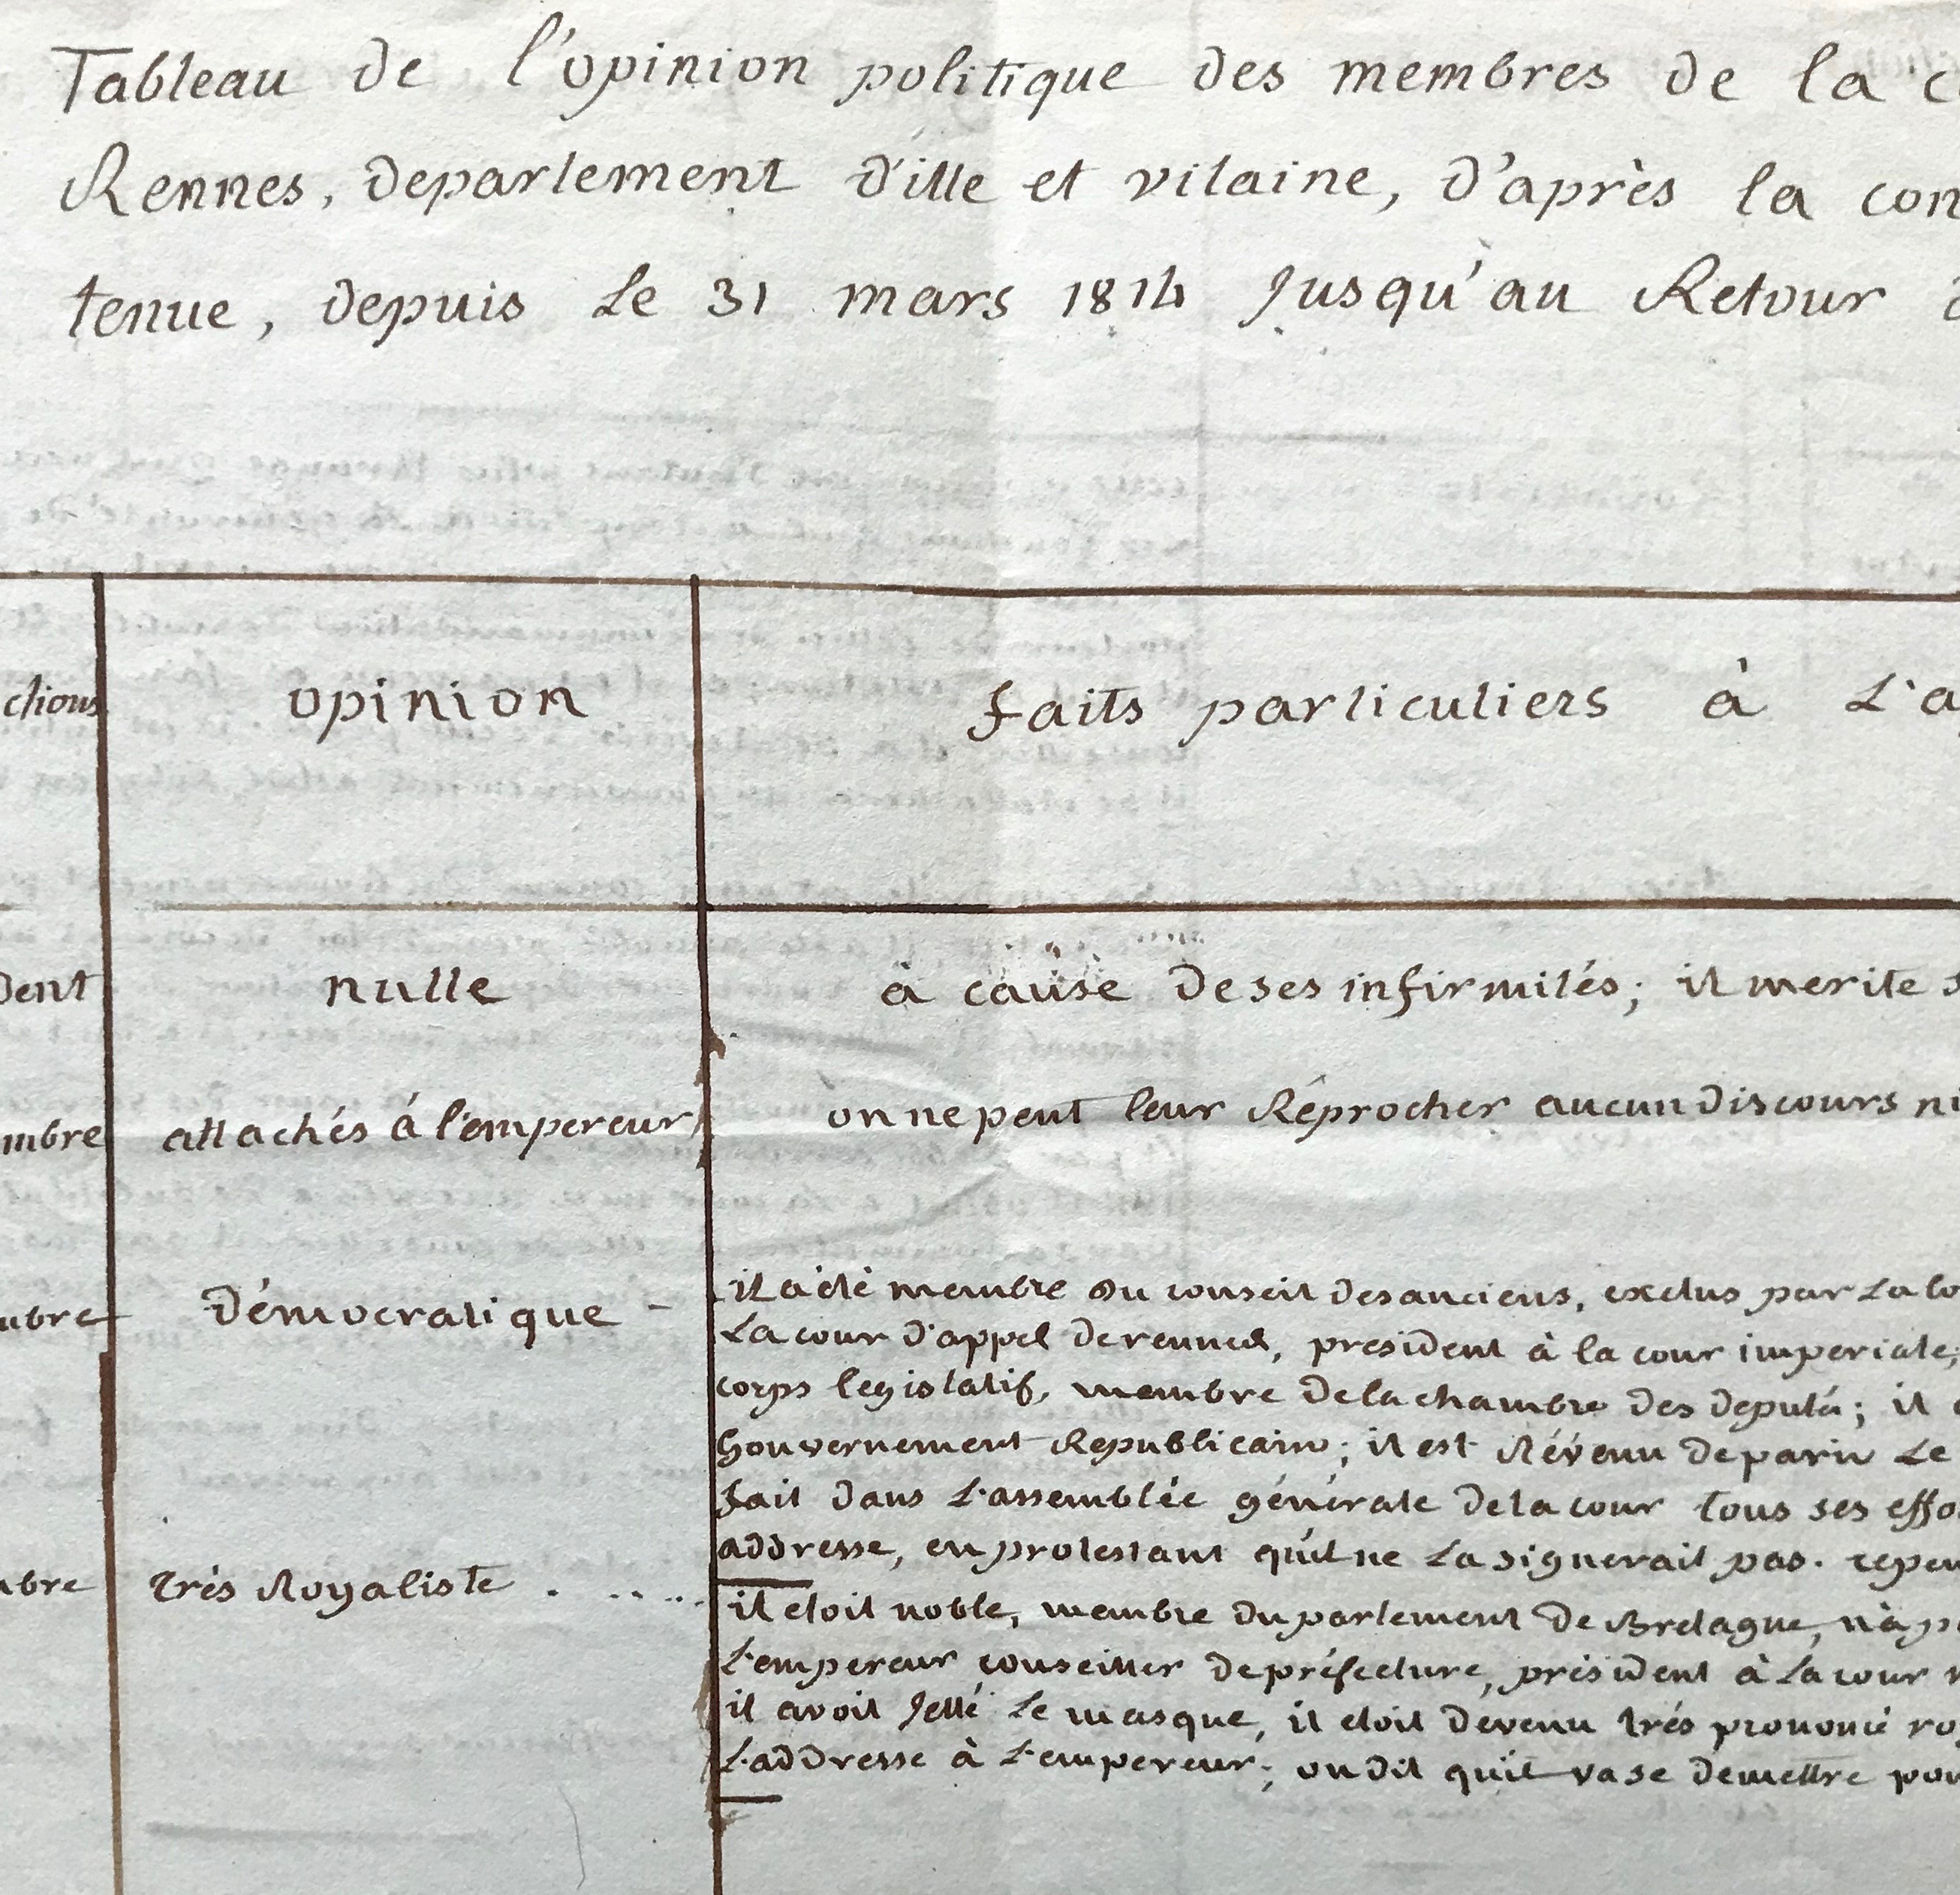 Tableau de l'opinion politique des membres de la c
Rennes, departement d'ille et vilaine, d'après la con
tenue, depuis Le 31 mars 1814 Jusqu'au Retour d
ctions opinion faits particuliers à L'a
dent nulle à cause de ses infirmités; il merite s
mbre attachés á l'empereur on ne peut leur Réprocher aucun discours ni
mbre Démocratique - il a été membre du conseil des anciens, exclus par La lo
La cour d'appel de rennes, president à la cour imperiale;
corps legislatif, membre de la chambre des deputés; il
Gouvernement Republicain; il est Révenu de paris Le
fait dans L'assemblée générale de la cour tous ses effo
addresse, en protestant qu'il ne La signerait pas. cepen
mbre trés Royaliste . .... il etoit noble, membre du parlement de Bretagne, n'a p
L'empereur conseiller de préfecture, président à La cour
il avoit Jetté Le masque, il etoit devenu trés prononcé roy
L'addresse à L'empereur; on dit qu'il va se demettre pou